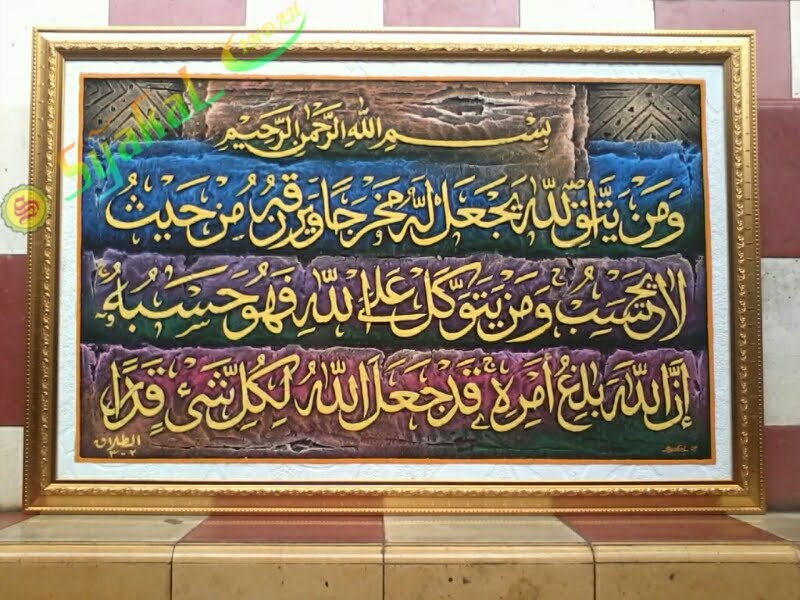 Syakal
بسم الله الرحمن الرحيم
ومن يتق الله يجعل له مخرجا ويرزقه من حيث
لا يحتسب ومن يتوكل على الله فهو حسبه
إن الله بلغ أمره قد جعل الله لكل شيء قدرا
الطلاق
٢-٣